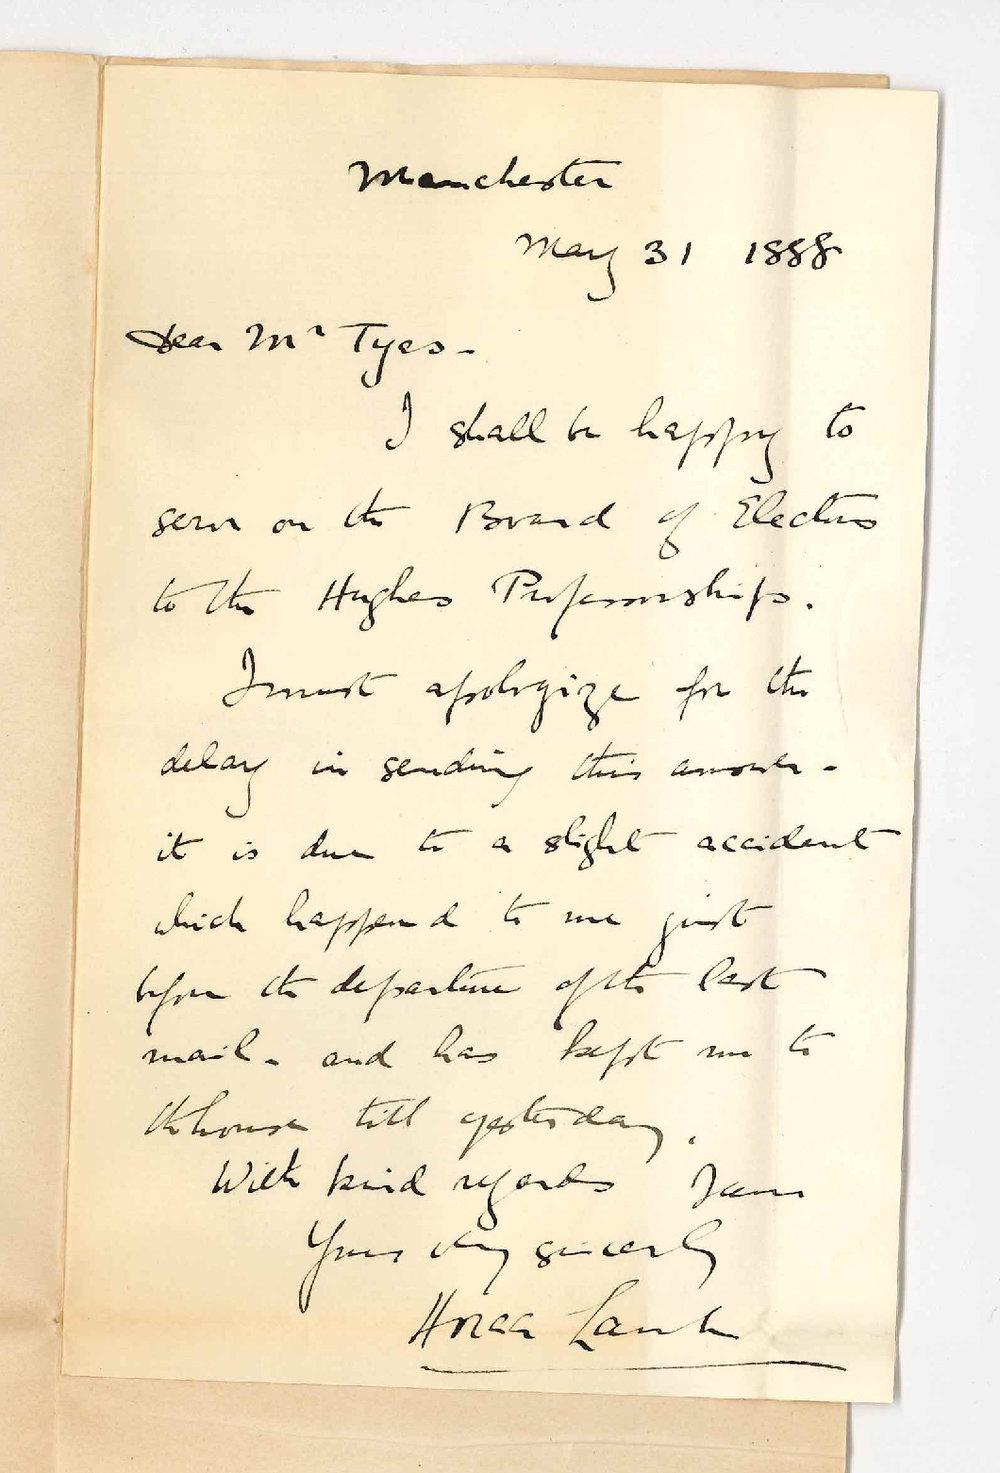 Manchester
May 31 1888
Dear Mr Tyas -
I shall be happy to
serve on the Board of Electors
to the Hughes Professorships.
I must apologize for the
delay in sending this answer -
it is due to a slight accident
which happened to me just
before the departure of the last
mail - and has kept me to
the house till yesterday.
With kind regards I am
Yours very sincerely
Horace Lamb